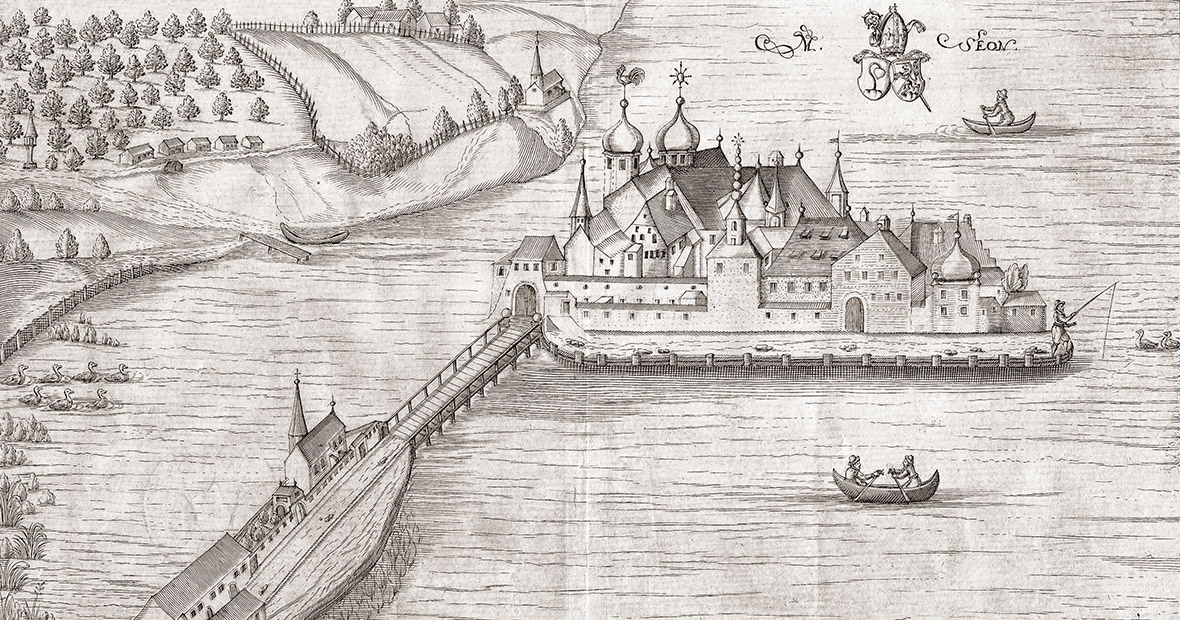 M. SEON.